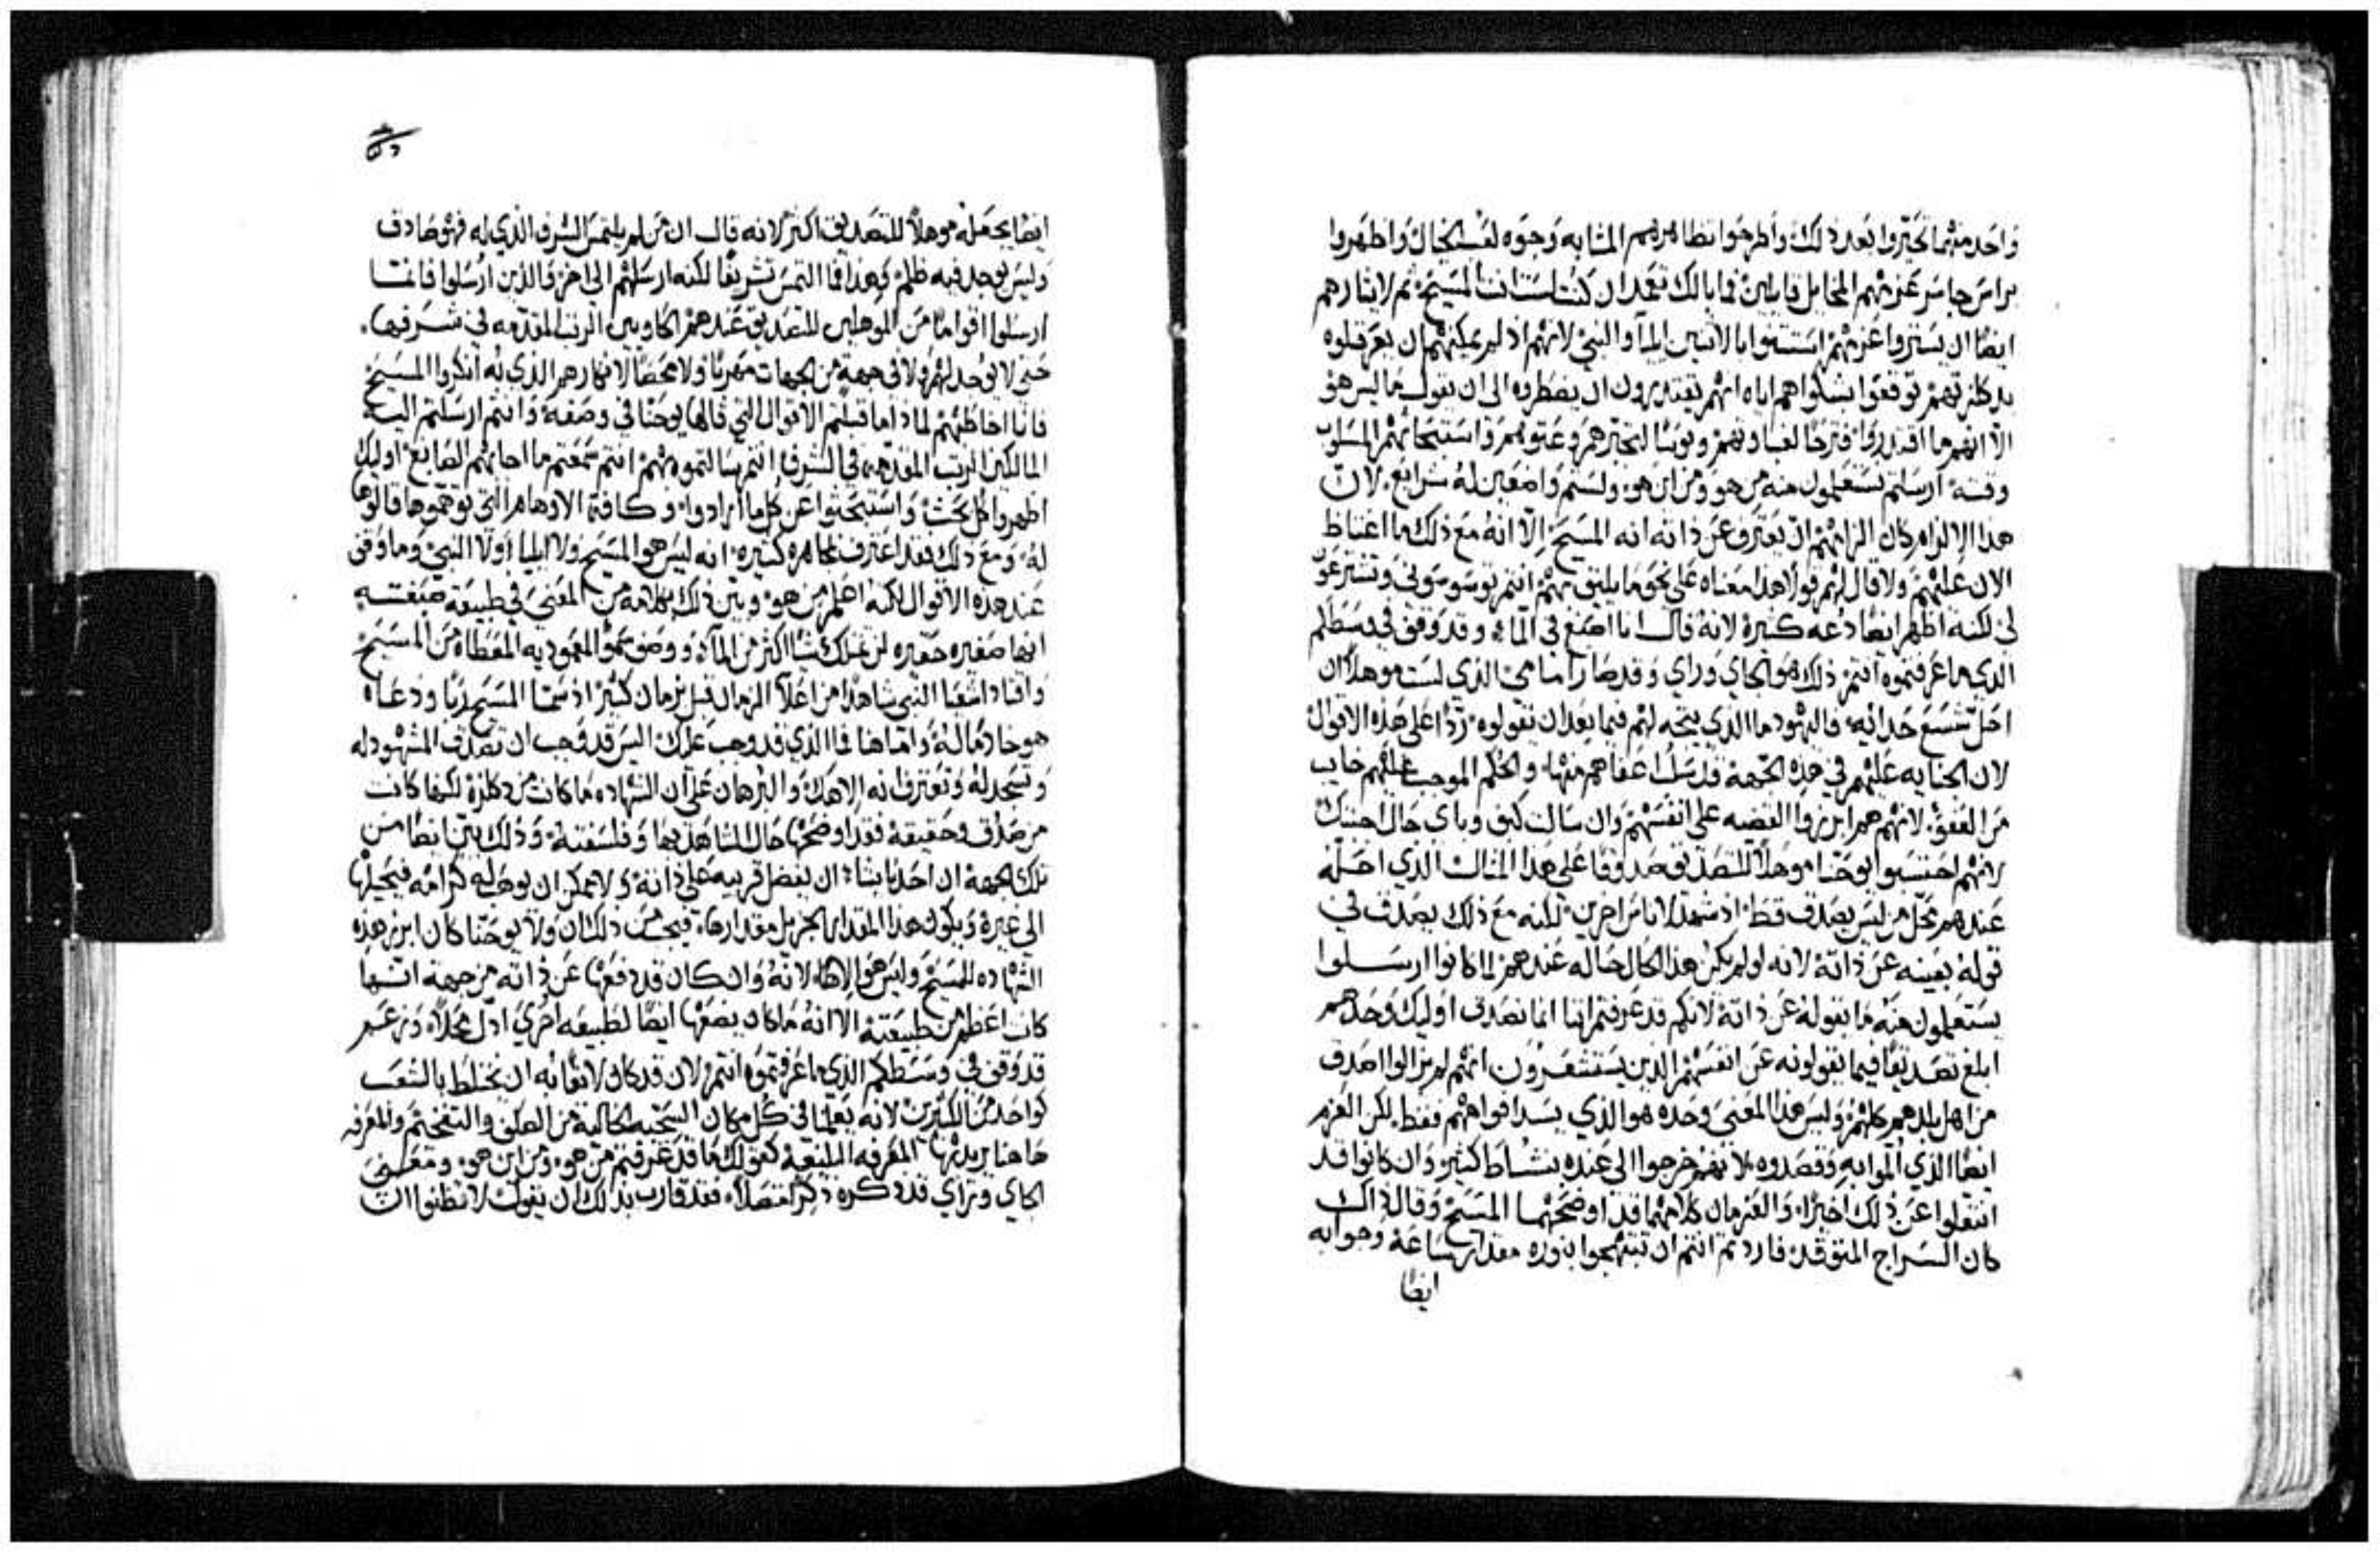 واحد منهما تحيروا بعد ذلك واطرحوا تظاهرهم المشابه وجوه لفس الحال واظهروا
براس حاسر عزمهم المخايل قايلين فما بالك تعمد ان كنت لست انت المسيح ثم لايثارهم
ايضا ان يستروا عزمهم استثنوا بالاثنين ايليا والنبي لانهم اذ لم يمكنهم ان يعرقلوه
توقعوا بشكواهم اياه انهم يقتدرون ان يضطروه الى ان يقول ما ليس هو
الا انهم ما اقتدروا
ارسلتم تستعلمون منه من هو ومن اين هو ولستم واضعين له شرايع لان
هذا الالزام كان الزامهم ان يعترف عن ذاته انه المسيح الا انه مع ذلك ما اغتاظ
الان عليهم ولا قال لهم قولا هذا معناه على نحو ما يليق بهم انتم توسوسوني وتشترعون
لي لكنه اظهر ايضا دعه كثيرة لانه قال انا اصبغ في الماء وقد وقف في وسطكم
الذي ما عرفتموه انتم ذلك هو الجاي وراي وقد صار امامي الذي لست موهلا ان
احل شسع حذائه واليهود ما الذي يتجه لهم فيما بعد ان يقولوه ردا على هذه الاقوال
لان الجنايه عليهم في هذه الجهة قد سلبنا عفاهم منها والحكم الموجب عليهم خايب
من العفو لانهم هم ابرزوا القضيه على انفسهم وان سالت كيف وباي حال اجبتك
لانهم احتسبوا يوحنا موهلا للتصديق صدوقا على هذا المثال الذي احله
عندهم محل من ليس يصدق فقط اذ شهد لاناس اخرين لكنه مع ذلك يصدق في
قوله بعينه عن ذاته لانه لو لم يكن هذا الحال حاله عندهم لما كانوا ارسلوا
يستعلمون منه ما يقوله عن ذاته لانكم قد عرفتم اننا انما نصدق اوليك وحدهم
ابلغ تصديقا فيما يقولونه عن انفسهم الذين يستشعرون انهم لم يزالوا اصدق
من اهل بلدهم كلهم وليس هذا المعنى وحده هو الذي يسد افواههم فقط لكن العزم
ايضا الذي الموا به وقصدوه لانهم خرجوا الى عنده بنشاط كثير وان كانوا قد
انتقلوا عن ذلك اخيرا والعزمان كلاهما قد اوضحهما المسيح وقال ذاك
كان السراج المتوقد فاردتم انتم ان تبتهجوا بنوره مقدار ساعة وجوابه
ايضا
ايضا يجعله موهلا للتصديق اكثر لانه قال ان من لم يلتمس الشرف الذي له فهو صادق
وليس يوجد فيه ظلم وهذا فما التمس تشريفا لكنه ارسلهم الى اخر والذين ارسلوا فانما
ارسلوا اقواما من الموهلين للتصديق عندهم الحاويين الرتب المتقدمه في شرفها
حتى لا يوجد لهم ولا في جهة من الجهات مهربا ولا محصا لانكارهم الذي به انكروا المسيح
فانا اخاطبهم لماذا ما قبلتم الاقوال التي قالها يوحنا في وصفه وانتم ارسلتم اليه
المالكين الرتب المتقدمه في الشرف انتم سالتموه بهم انتم سمعتم ما اجابهم الصابغ اوليك
اظهروا كل بحث واستبحثوا عن كل ما ارادوا وكافة الاوهام التي توهموها قالوها
له ومع ذلك فقد اعترف بمجاهره كثيره انه ليس هو المسيح ولا ايليا ولا النبي وما وقف
عند هذه الاقوال لكنه اعلم من هو وبين ذلك بكلامه من المعنى في طبيعة صبغته
انها صغيره حقيره لن تملك شيا اكثر من الماء ووصف سمو المعموديه المعطاه من المسيح
واقتاد اشعيا النبي شاهدا من اعلا الزمان قبل زمان كثير اذ سما المسيح ربا ودعاه
هو خادما له واما هاهنا فما الذي قد وجب عمله اليس قد وجب ان تصدق المشهود له
وتسجد له وتعترف انه الاهك والبرهان على ان الشهاده ما كانت من لكنها كانت
من صدق وحقيقة فقد اوضحها حال الشاهد بها وفلسفته وذلك بين ايضا من
تلك الجهة ان احدنا يشاء ان يفضل قريبه على ذاته ولا يمكن ان يوهب له كرامه فيحيلها
الى غيره ويكون هذا المقدار الجزيل مقدارها فيجب من ذلك ان ولا يوحنا كان ابرز هذه
الشهاده للمسيح وليس هو الاها لانه وان كان قد دفعها عن ذاته من جهة انها
كانت اعظم من طبيعته الا انه ما كان يضعها ايضا لطبيعه اخرى اذل محلا وزعم
قد وقف في وسطكم الذي ما عرفتموه انتم لان قد كان لايقا به ان يختلط بالشعب
كواحد من الكثيرين لانه يعلمنا في كل مكان السجيه الخالية من الصلف والتفخيم والمعرفه
هاهنا يريد بها المعرفه البليغة كقولك ما قد عرفتم من هو ومن اين هو ومعنى
الجاي وراي قد ذكره ذكرا متصلا فقد قارب بذلك ان يقول لا تظنوا ان